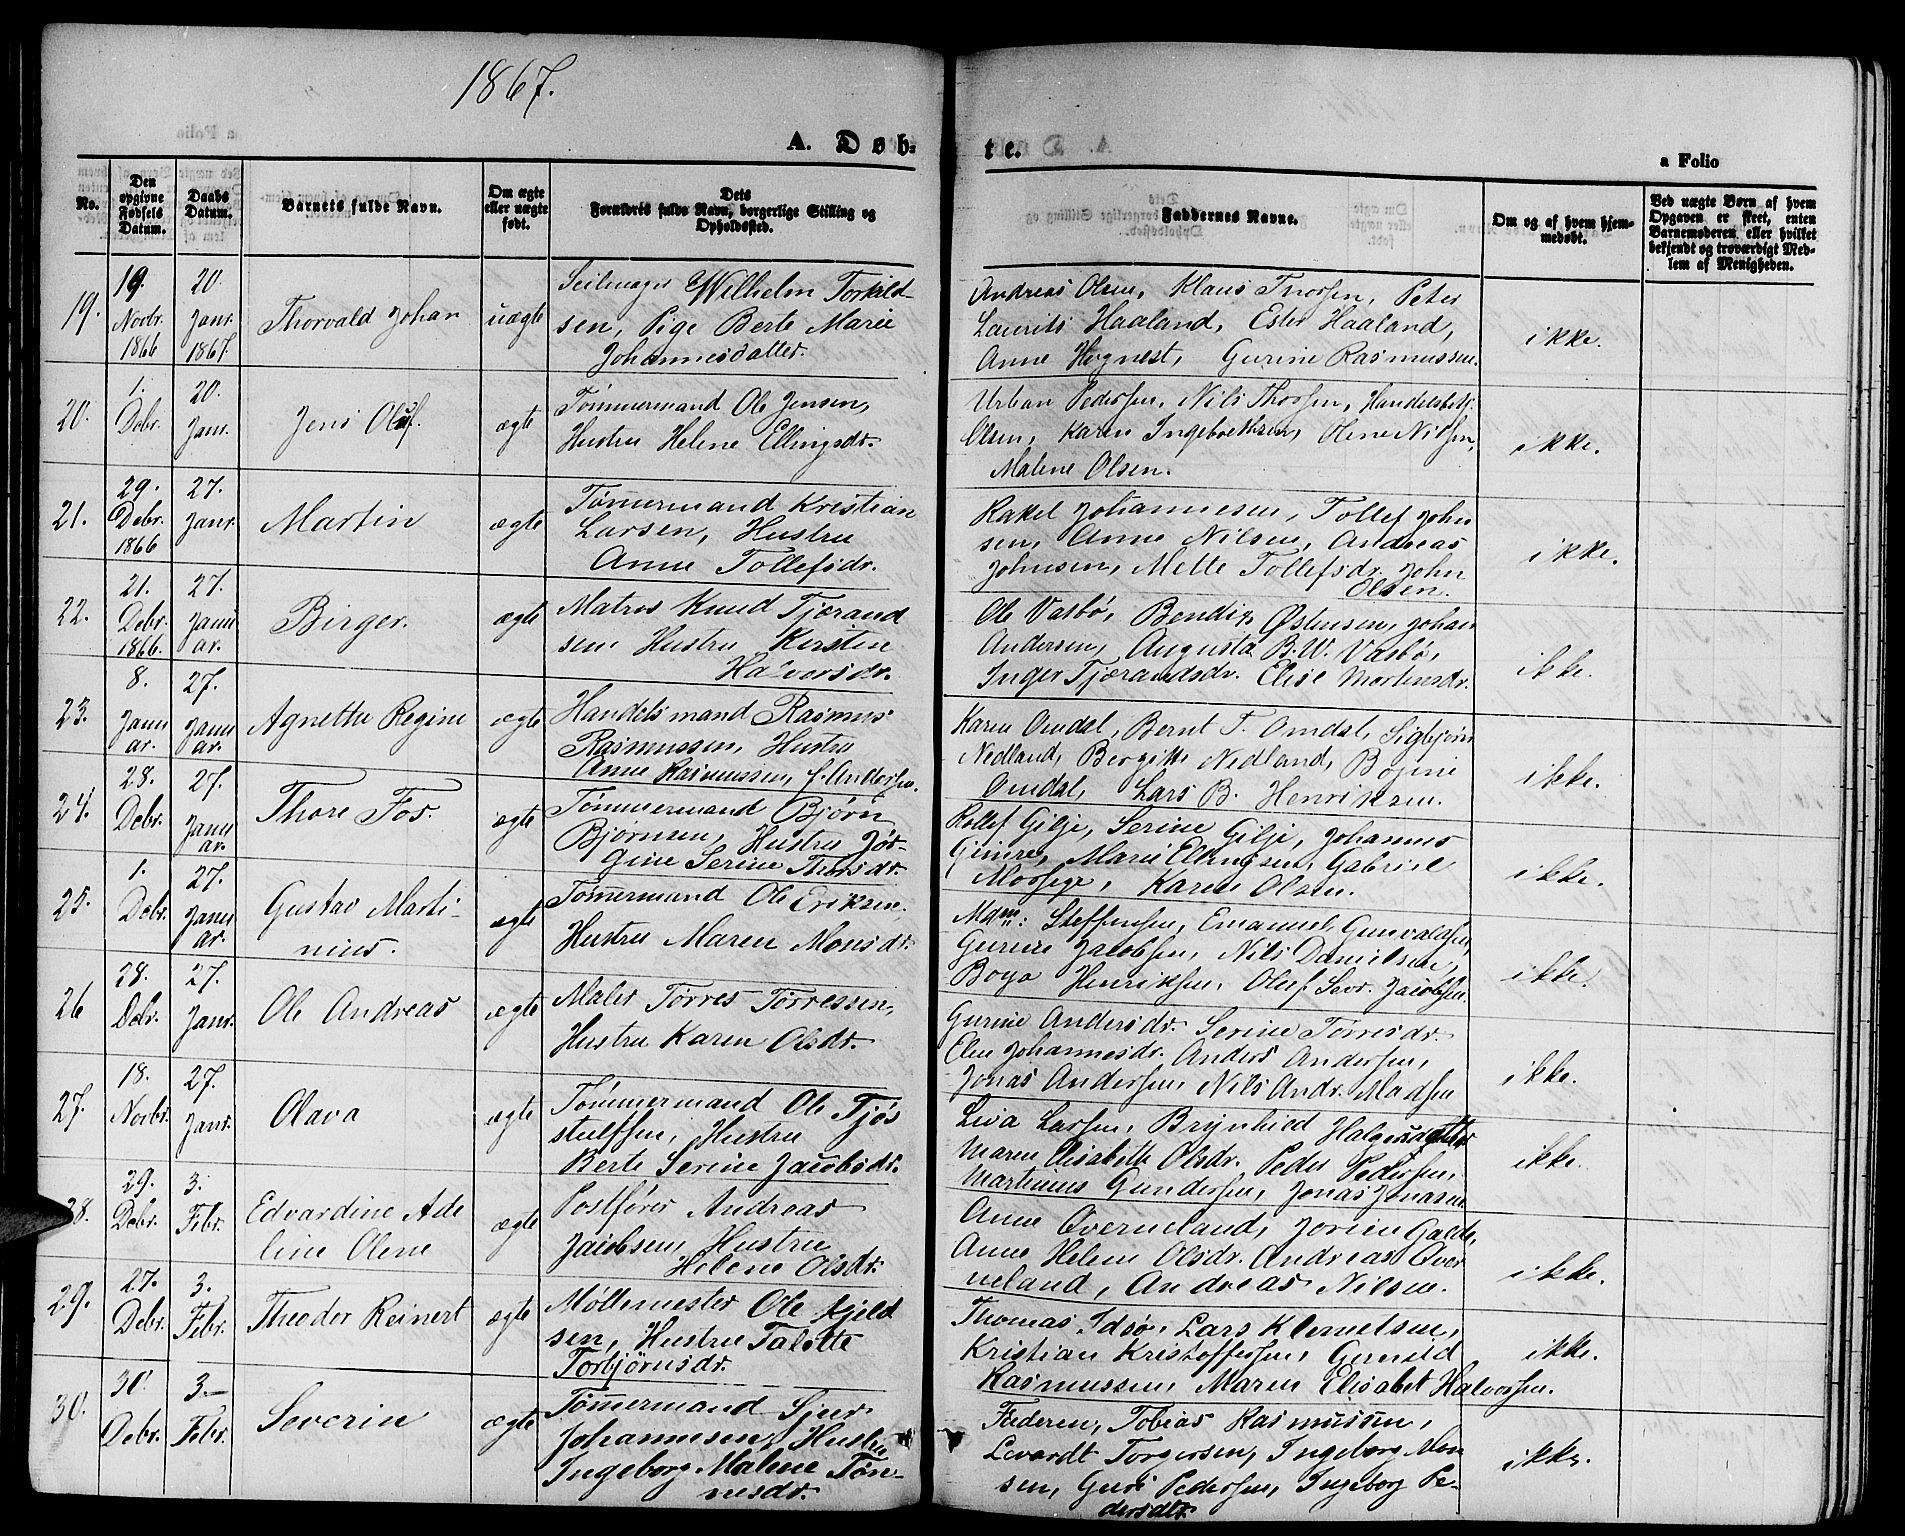 1867.
A. Døb-
te.
a Folio
No.
Den opgivne Fødsels Datum.
Daabs Datum.
Barnets fulde Navn.
Om ægte eller uægte født.
Dets Forældres fulde Navn, borgerlige Stilling og Opholdssted.
Faddernes Navne.
Om og af hvem hjemmedøbt.
Ved uægte Børn af hvem Opgaven er skeet, enten Barnemoderen eller hvilket bekjendt og troværdigt Medlem af Menigheden.
19.
19. Novbr. 1866
20. Janr. 1867.
Thorvald Johan
uægte
Seilmager Wilhelm Torkild-
sen, Pige Berte Marie
Johannesdatter.
Andreas Olsen, Klaus Thorsen, Peter
Laurits Haaland, Ester Haaland,
Anne Hognest, Gurine Rasmussen.
ikke.
20.
1. Debr.
20. Janr.
Jens Oluf.
ægte
Tømmermand Ole Jensen,
Hustru Helene Ellingsdr.
Urban Pedersen, Nils Thorsen, Handelsbetj.
Olsen, Karen Ingebrethsen, Olene Nilsen,
Malene Olsen.
ikke.
21.
29. Debr. 1866
27. Janr.
Martin
ægte
Tømermand Kristian
Larsen, Hustru
Anne Tollefsdr.
Rakel Johannesen, Tollef John
sen, Anne Nilsen, Andreas
Johnsen, Mette Tollefsdr. John
Olsen.
ikke.
22.
21. Debr. 1866.
27. Janu ar.
Birger.
ægte
Matros Knud Tjærand
sen Hustru Kersten
Halvorsdr.
Ole Vasbø, Bendix Østensen, Johan
Andersen, Augusta B.W. Vasbø,
Inger Tjærandsdr. Elise Mortensdr.
ikke.
23.
8. Janu ar.
27. Janu ar.
Agnette Regine
ægte
Handelsmand Rasmus
Rasmussen, Hustru
Anne Rasmussen, f. Andersen.
Karen Omdal, Bernt T. Omdal, Sigbjørn
Nedland, Bergitte Nedland, Bogine
Omdal, Lars B. Henriksen.
ikke.
24.
28. Debr.
27. Janu ar.
Thore Fos.
ægte
Tømmermand Bjørn
Bjørnsen, Hustru Jør-
gine Serine Thorsdr.
Rollef Gilje, Serine Gilje, Johannes
Gimre, Marie Ellingsen, Gabriel
Morsege, Karen Olsen.
ikke.
25.
1. Debr.
27. Janu ar.
Gustav Marti-
nius.
ægte
Tømermand Ole Eriksen.
Hustru Maren Monsdr.
Mdm: Steffensen, Emanuel Gunvaldsen,
Gurine Jacobsen, Nils Danielsen,
Boya Henriksen, Oluf Sevr. Jacobsen.
ikke.
26
28. Debr.
27. Janr.
Ole Andreas
ægte
Maler Tørres Tørressen,
Hustru Karen Olsdr.
Gurine Andersdr. Serine Tørresdr.
Elen Johannesdr. Anders Andersen,
Jonas Andersen, Nils Andr. Madsen
ikke.
27.
18. Novbr.
27. Janr.
Olava
ægte
Tømmermand Ole Tjøs
stulfsen, Hustru
Berte Serine Jacobsdr.
Lisa Larsen, Brynhild Halgersdatter
Maren Elisabeth Olsdr. Peder Pedersen,
Martinus Gundersen, Jonas Jonasen.
ikke.
28.
29. Debr.
3. Febr.
Edvardine Ade
line Olene
ægte
Postfører Andreas
Jacobsen, Hustru
Helene Olsdr.
Anne Øverneland, Jorine Galde,
Anne Helene Olsdr. Andreas Øver
neland, Andreas Nilsen.
ikke.
29.
27. Debr.
3. Febr.
Theodor Reinert
ægte
Møllemester Ole Kjeld
sen, Hustru Talette
Torbjørnsdr.
Thomas Idsø, Lars Klemetsen,
Kristian Kristoffersen, Gunild
Rasmussen, Maren Elisabet Halvorsen.
ikke.
30.
30. Debr.
3. Febr.
Severin
ægte
Tømermand Sjur
Johannesen, Hustru
Ingeborg Malene Tøn-
nesdr.
Faderen, Tobias Rasmussen,
Levardt Torgersen, Ingeborg Mon
sen, Guri Pedersen, Ingeborg Pe-
dersdtr.
ikke.